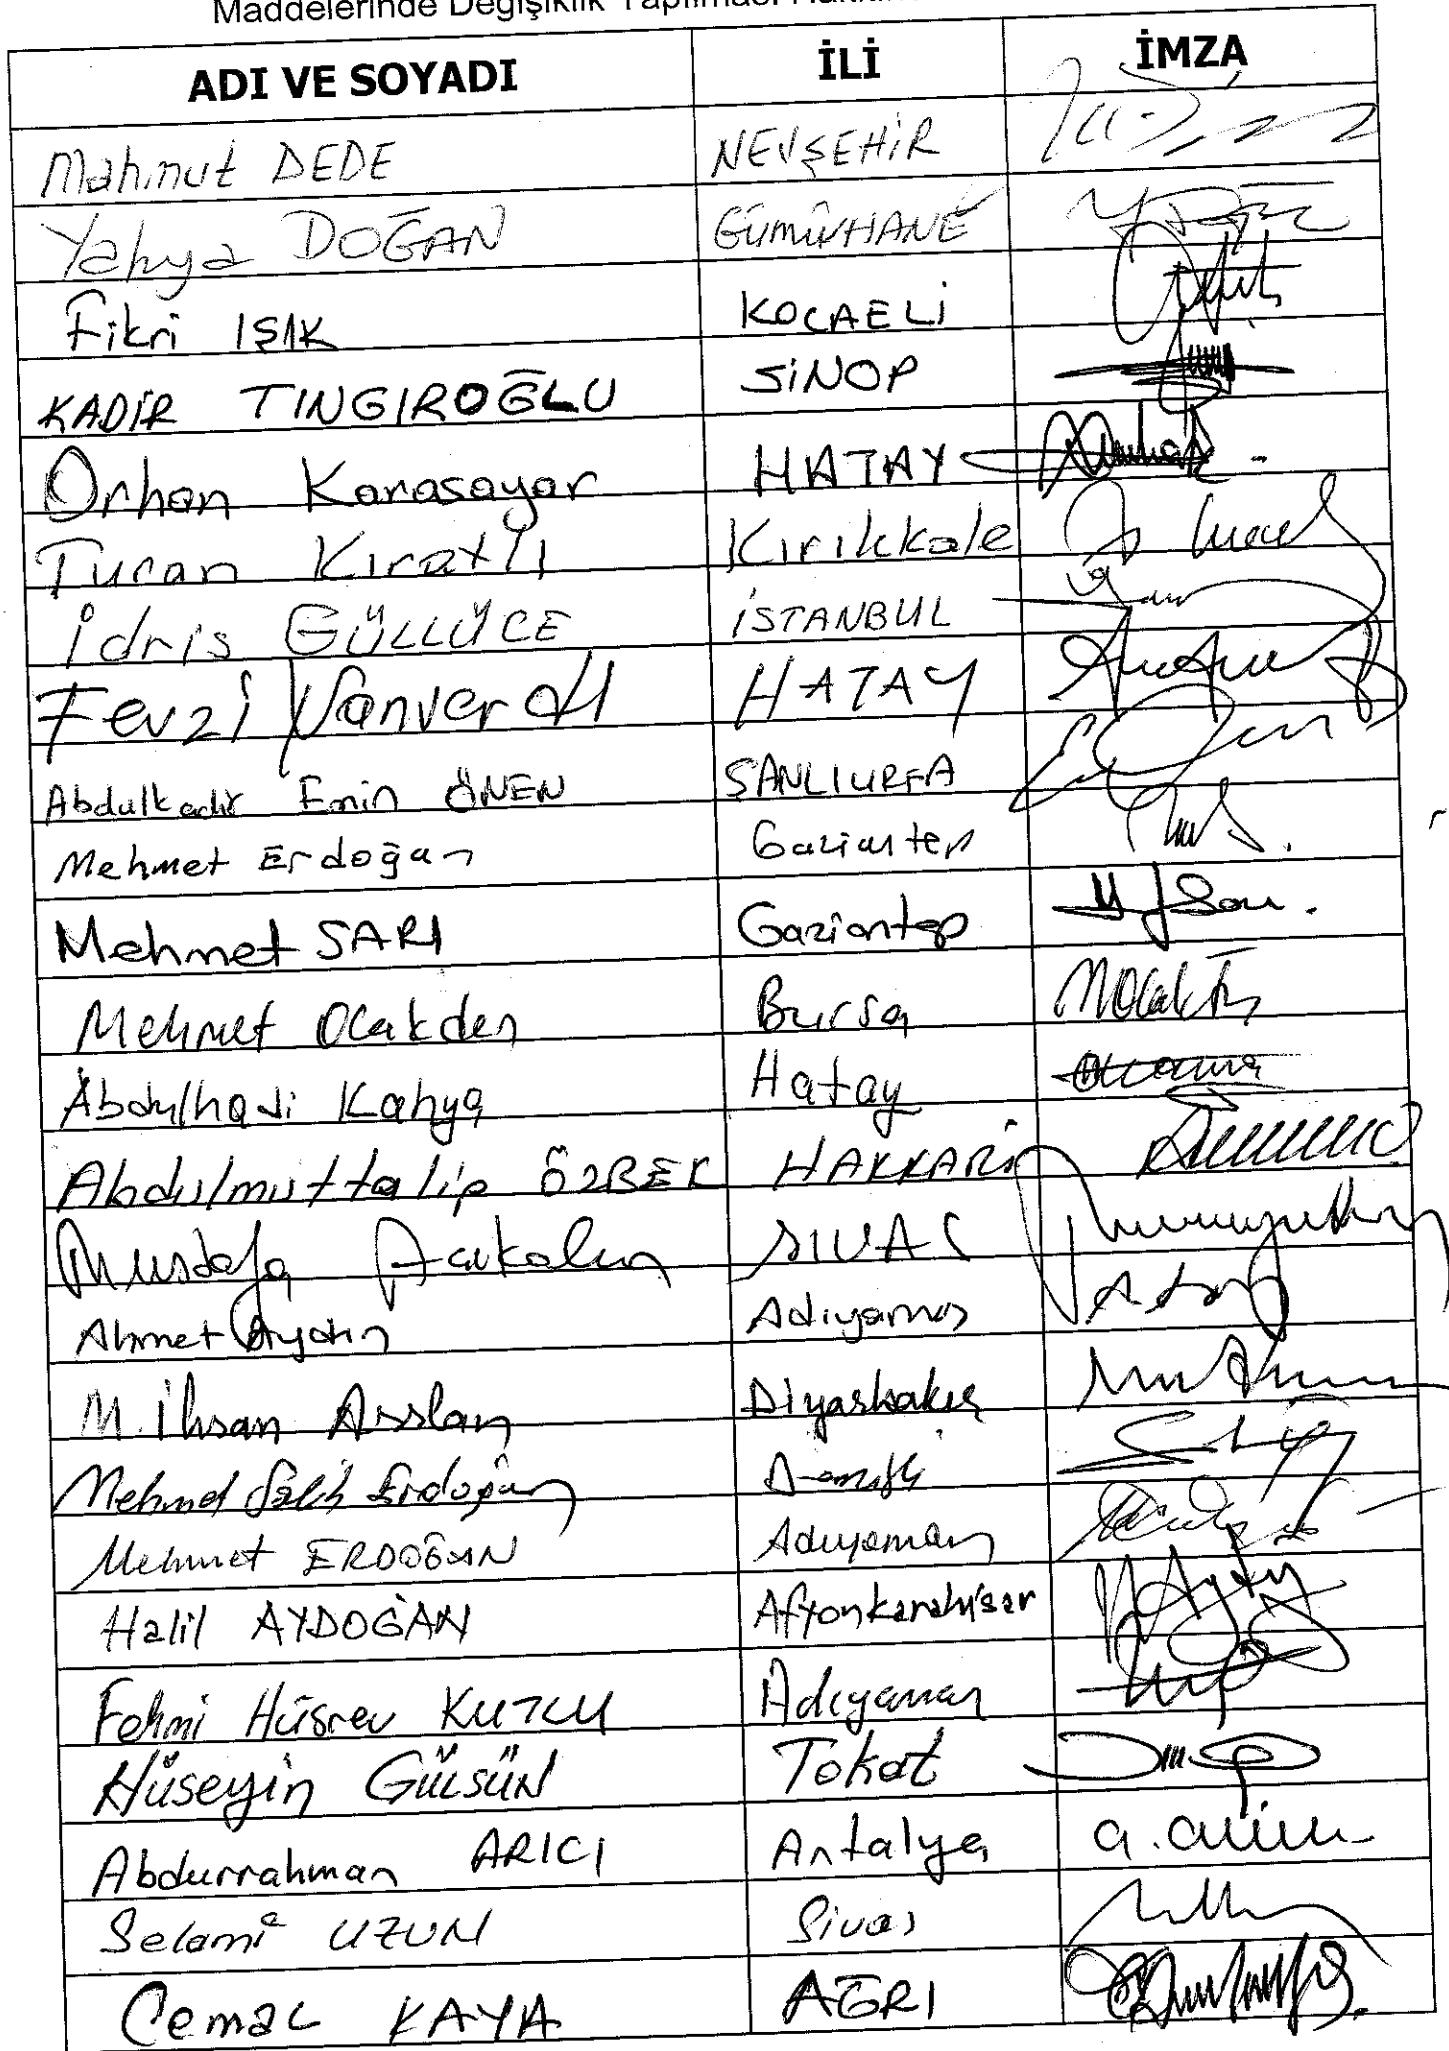 Maddelerinde Değişiklik Yapılması
ADI VE SOYADI İLİ İMZA
Mahmut DEDE NEVŞEHİR
Yahya DOĞAN GÜMÜŞHANE
Fikri IŞIK KOCAELİ
KADİR TINGIROĞLU SİNOP
Orhan Karasayar HATAY
Turan Kıratlı Kırıkkale
İdris GÜLLÜCE İSTANBUL
Fevzi Şanverdi HATAY
Abdulkadir Emin ÖNEN ŞANLIURFA
Mehmet Erdoğan Gaziantep
Mehmet SARI Gaziantep
Mehmet Ocakden Bursa
Abdulhadi Kahya Hatay
Abdulmuttalip ÖZBEK HAKKARİ
Mustafa Açıkalın SIVAS
Ahmet Aydın Adıyaman
M. İhsan Arslan Diyarbakır
Mehmet Salih Erdoğan Denizli
Mehmet ERDOĞAN Adıyaman
Halil AYDOĞAN Afyonkarahisar
Fehmi Hüsrev KUTLU Adıyaman
Hüseyin GÜLSÜN Tokat
Abdurrahman ARICI Antalya
Selami UZUN Sivas
Cemal KAYA AĞRI